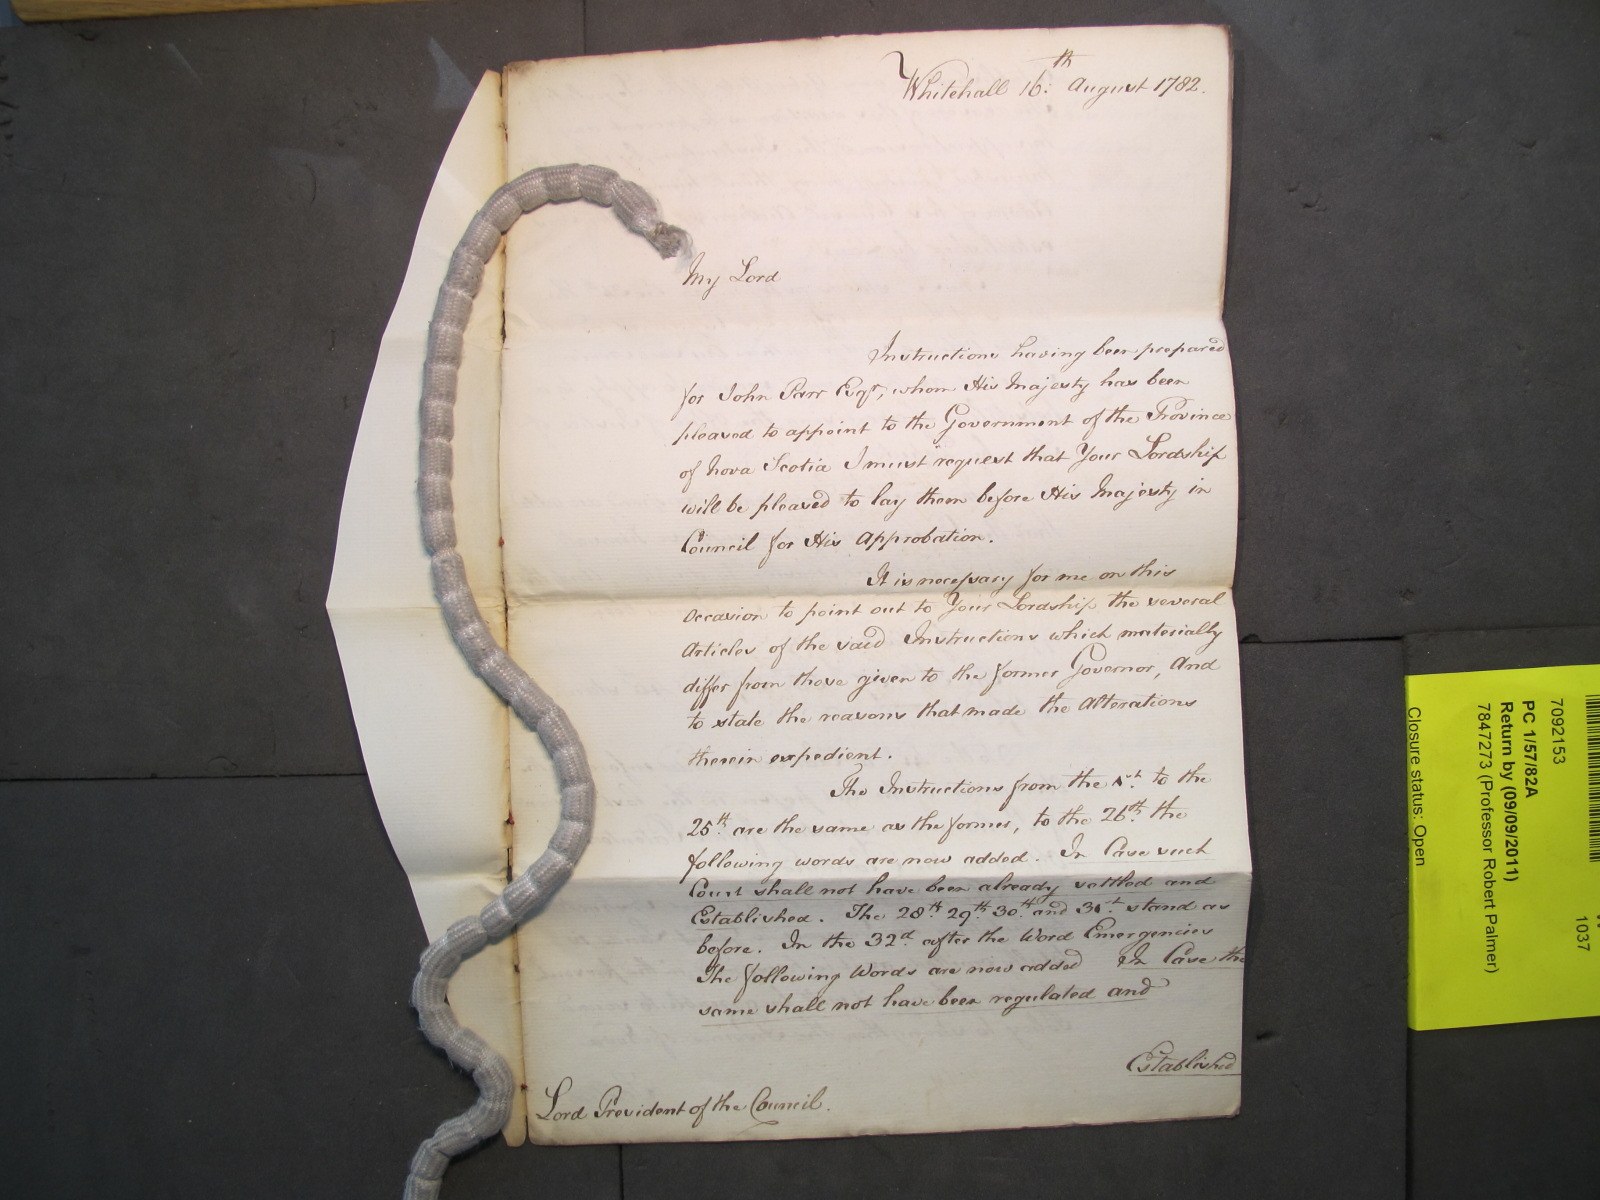 Whitehall 16.th August 1782.
My Lord
Instructions having been prepared
for John Parr Esqr, whom His Majesty has been
pleased to appoint to the Government of the Province
of Nova Scotia I must request that Your Lordship
will be pleased to lay them before His Majesty in
Council for His Approbation.
It is necessary for me on this
Occasion to point out to Your Lordship the several
Articles of the said Instructions which materially
differ from those given to the former Governor, And
to state the reasons that made the Alterations
therein expedient.
The Instructions from the 1st to the
25th are the same as the former, to the 26th the
following words are now added. In Case such
Court shall not have been already settled and
Established. The 28th 29th 30th and 31st stand as
before. In the 32d after the Word Emergencies
The following Words are now added In Case the
same shall not have been regulated and
Established
Lord President of the Council.
7092153
PC 1/57/82A
Return by (09/09/2011)
7847273 (Professor Robert Palmer)
Closure status: Open
1037